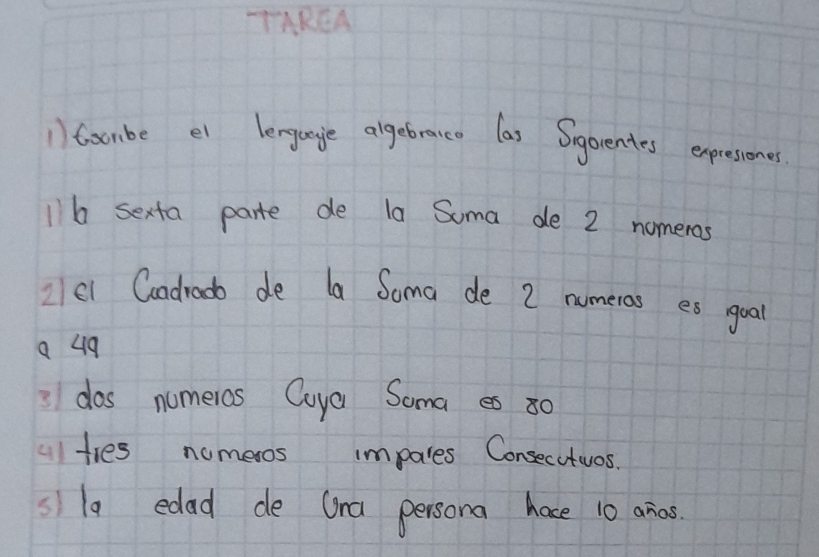 TAREA
1) Escribe el lenguaje algebraico las Siguientes expresiones.
1) la sexta parte de la Suma de 2 numeros
2) el Cuadrado de la Suma de 2 numeros es igual
a 49
3) dos numeros Cuya Suma es 80
4) tres numeros impares Consecutivos.
5) la edad de Una persona hace 10 años.